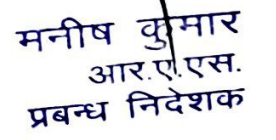 मनीष कुमार
आर.ए.एस.
प्रबन्ध निदेशक